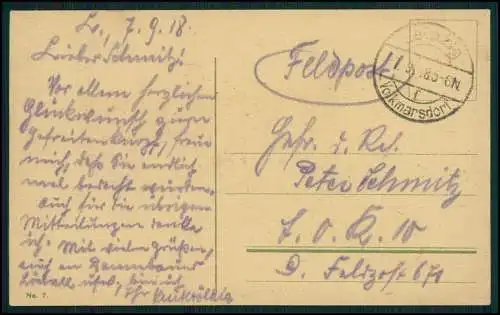 L., 7.9.18.
Lieber Schmitz!
Vor allem herzlichen
Glückwunsch zum
Gefreitenknopf, freue
mich, daß Sie endlich
mal bedacht wurden.
Auch für die übrigen
Mitteilungen danke
ich. Mit vielen Grüßen,
auch an
usw. bin ich
Ihr
No. 7.
Feldpost!
Volkmarsdorf
Gefr. d. Res.
Peter Schmitz
A. O. K. 10
D. Feldpost 671